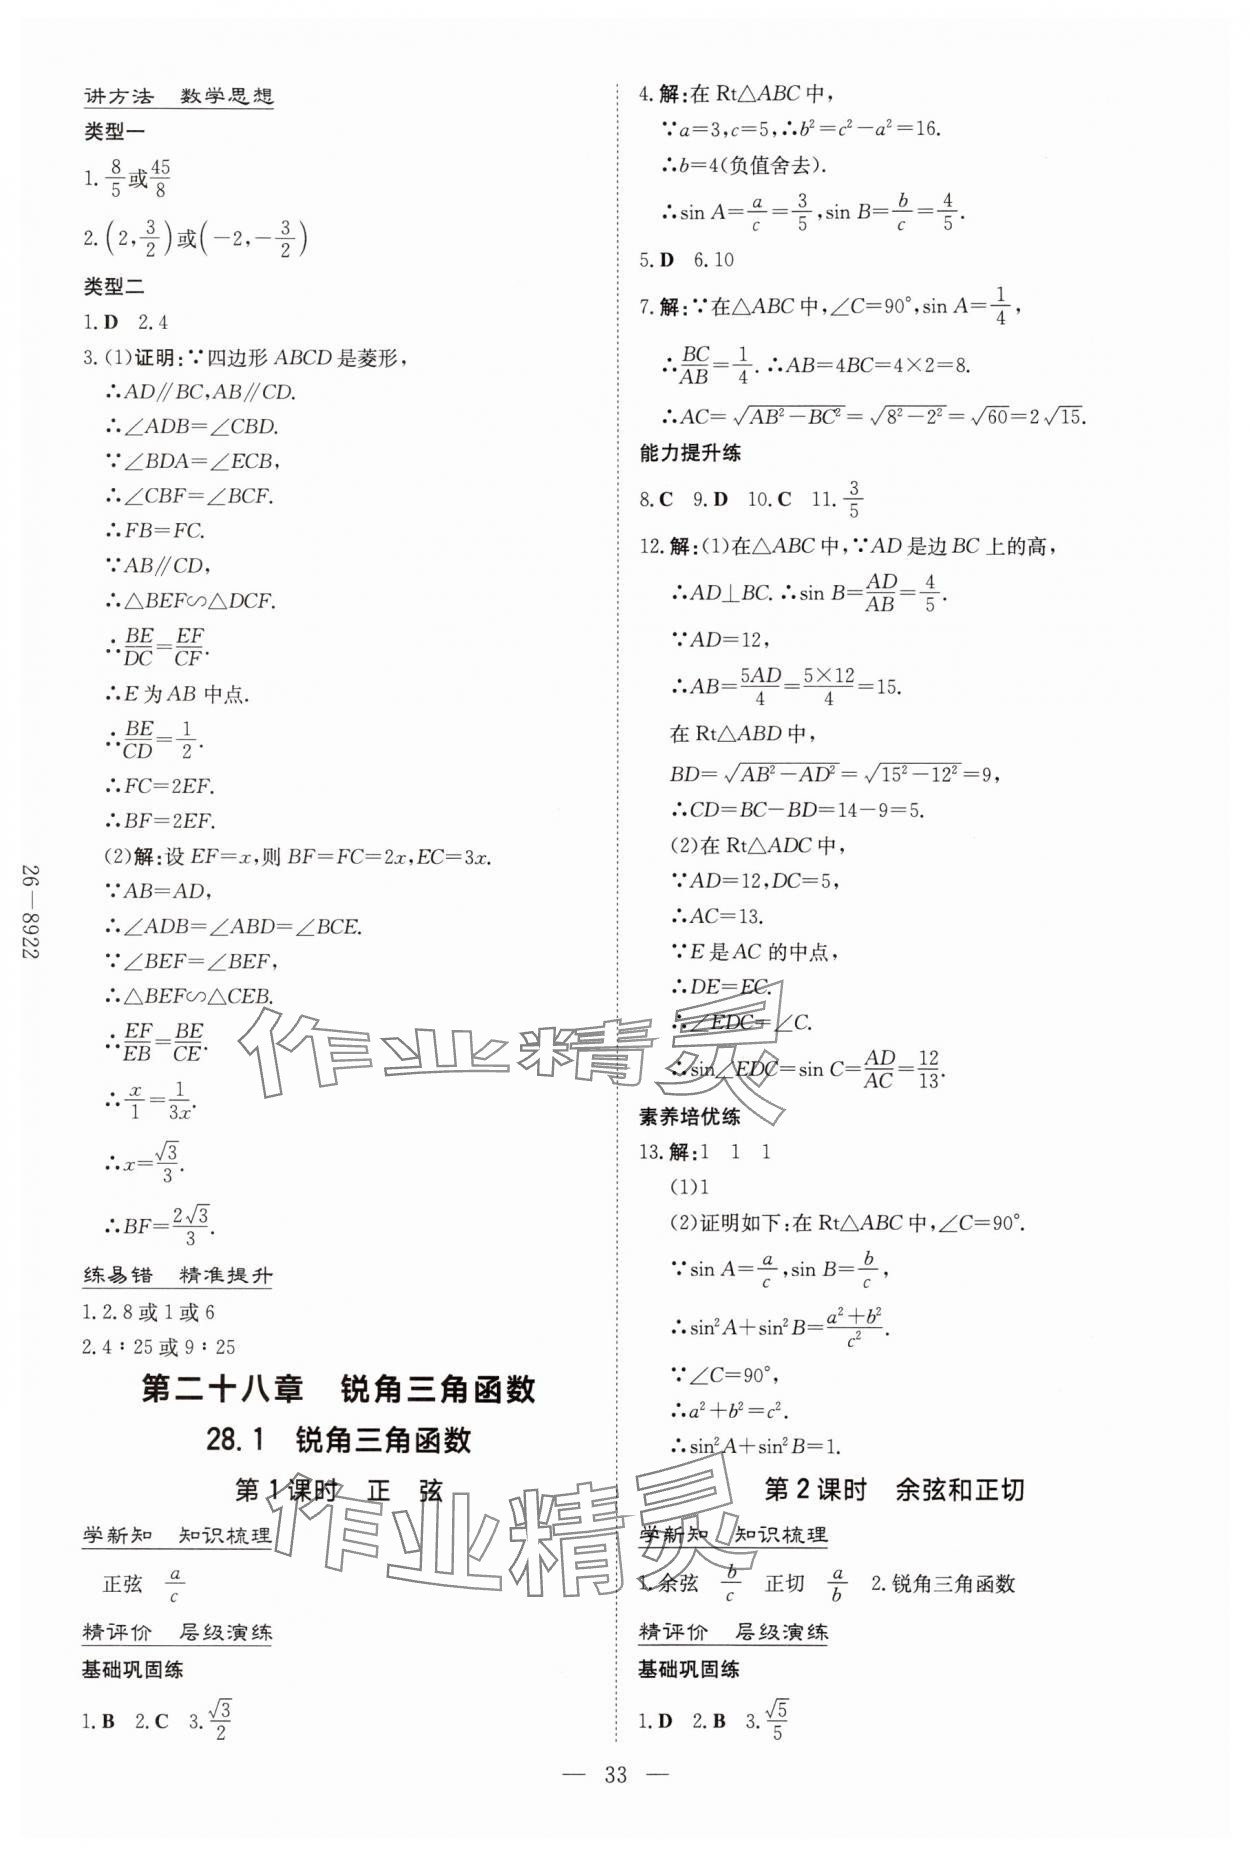 讲方法　数学思想
类型一
1. 8/5 或 45/8
2. (2, 3/2) 或 (-2, -3/2)
类型二
1. D　2. 4
3. (1)证明:∵四边形 ABCD 是菱形,
∴AD∥BC,AB∥CD.
∴∠ADB=∠CBD.
∵∠BDA=∠ECB,
∴∠CBF=∠BCF.
∴FB=FC.
∵AB∥CD,
∴△BEF∽△DCF.
∴BE/DC=EF/CF.
∴E 为 AB 中点.
∴BE/CD=1/2.
∴FC=2EF.
∴BF=2EF.
(2)解:设 EF=x,则 BF=FC=2x,EC=3x.
∵AB=AD,
∴∠ADB=∠ABD=∠BCE.
∵∠BEF=∠BEF,
∴△BEF∽△CEB.
∴EF/EB=BE/CE.
∴x/1=1/3x.
∴x=√3/3.
∴BF=2√3/3.
练易错　精准提升
1. 2.8 或 1 或 6
2. 4∶25 或 9∶25
第二十八章　锐角三角函数
28.1　锐角三角函数
第 1 课时　正　弦
学新知　知识梳理
正弦　a/c
精评价　层级演练
基础巩固练
1. B　2. C　3. √3/2
4. 解:在 Rt△ABC 中,
∵a=3,c=5,∴b²=c²-a²=16.
∴b=4(负值舍去).
∴sin A=a/c=3/5,sin B=b/c=4/5.
5. D　6. 10
7. 解:∵在△ABC 中,∠C=90°,sin A=1/4,
∴BC/AB=1/4.∴AB=4BC=4×2=8.
∴AC=√(AB²-BC²)=√(8²-2²)=√60=2√15.
能力提升练
8. C　9. D　10. C　11. 3/5
12. 解:(1)在△ABC 中,∵AD 是边 BC 上的高,
∴AD⊥BC.∴sin B=AD/AB=4/5.
∵AD=12,
∴AB=5AD/4=5×12/4=15.
在 Rt△ABD 中,
BD=√(AB²-AD²)=√(15²-12²)=9,
∴CD=BC-BD=14-9=5.
(2)在 Rt△ADC 中,
∵AD=12,DC=5,
∴AC=13.
∵E 是 AC 的中点,
∴DE=EC.
∴∠EDC=∠C.
∴sin∠EDC=sin C=AD/AC=12/13.
素养培优练
13. 解:1　1　1
(1)1
(2)证明如下:在 Rt△ABC 中,∠C=90°.
∵sin A=a/c,sin B=b/c,
∴sin²A+sin²B=(a²+b²)/c².
∵∠C=90°,
∴a²+b²=c².
∴sin²A+sin²B=1.
第 2 课时　余弦和正切
学新知　知识梳理
1. 余弦　b/c　正切　a/b　2. 锐角三角函数
精评价　层级演练
基础巩固练
1. D　2. B　3. √5/5
26—8922
— 33 —
作业精灵
作业精灵